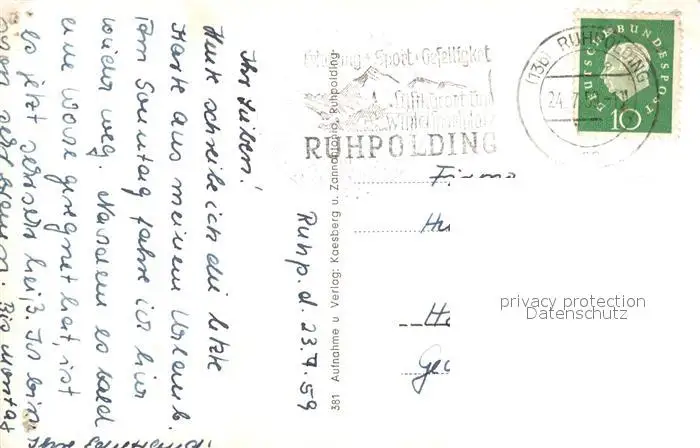 Ruhp. d. 23.7.59
Ihr Lieben!
Heute schreibe ich die letzte
Karte aus meinem Urlaub.
Am Sonntag fahre ich hier
wieder weg. Nachdem es bald
eine Woche geregnet hat, ist
es jetzt sehr sehr heiß. Ich bin
schon sehr braun. Bis Montag
Erholung · Sport · Geselligkeit
Luftkurort und
Wintersportplatz
RUHPOLDING
(13b) RUHPOLDING
24.7.59
DEUTSCHE BUNDESPOST
10
381 Aufnahme u Verlag: Kaesberg u. Zannantonio, Ruhpolding
Firma
He
Ge
privacy protection
Datenschutz